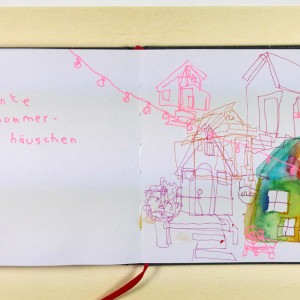 nte
ommer-
häuschen